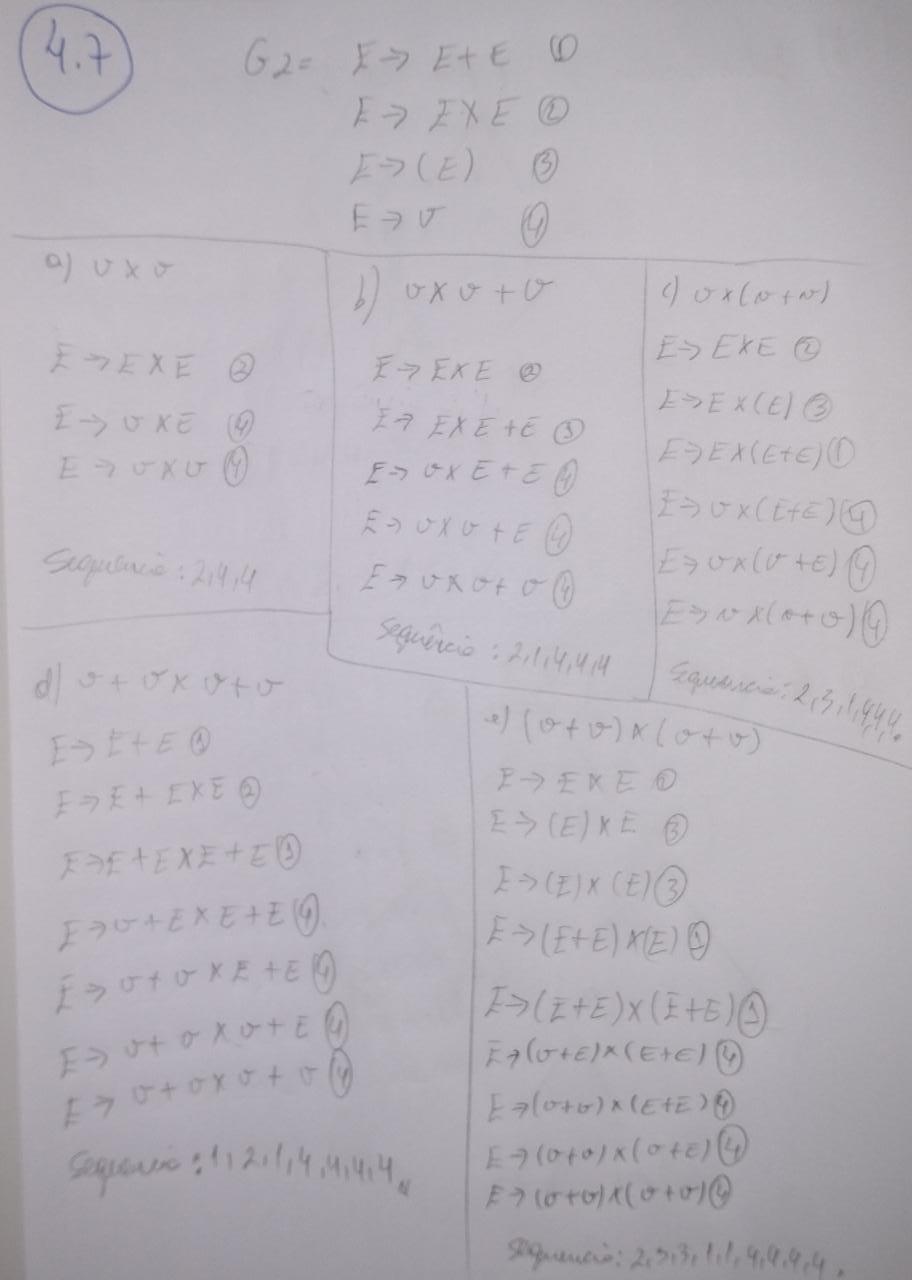 4.7
G2= E → E+E ①
E → E X E ②
E → (E) ③
E → v ④
a) v x v
E → E X E ②
E → v X E ④
E → v x v ④
Sequência: 2,4,4
b) v x v + v
E → E X E ②
E → E X E + E ①
E → v X E + E ④
E → v x v + E ④
E → v x v + v ④
Sequência: 2,1,4,4,4
c) v x (v + v)
E → E X E ②
E → E X (E) ③
E → E X (E+E) ①
E → v x (E+E) ④
E → v x (v + E) ④
E → v x (v + v) ④
Sequencia: 2,3,1,4,4,4.
d) v + v x v + v
E → E + E ①
E → E + E X E ②
E → E + E X E + E ①
E → v + E X E + E ④
E → v + v X E + E ④
E → v + v x v + E ④
E → v + v x v + v ④
Sequencia: 1,2,1,4,4,4,4
e) (v + v) x (v + v)
E → E X E ②
E → (E) X E ③
E → (E) x (E) ③
E → (E+E) X (E) ①
E → (E+E) x (E+E) ①
E → (v+E) x (E+E) ④
E → (v+v) x (E+E) ④
E → (v+v) x (v+E) ④
E → (v+v) x (v+v) ④
Sequencia: 2,3,3,1,1,4,4,4,4.